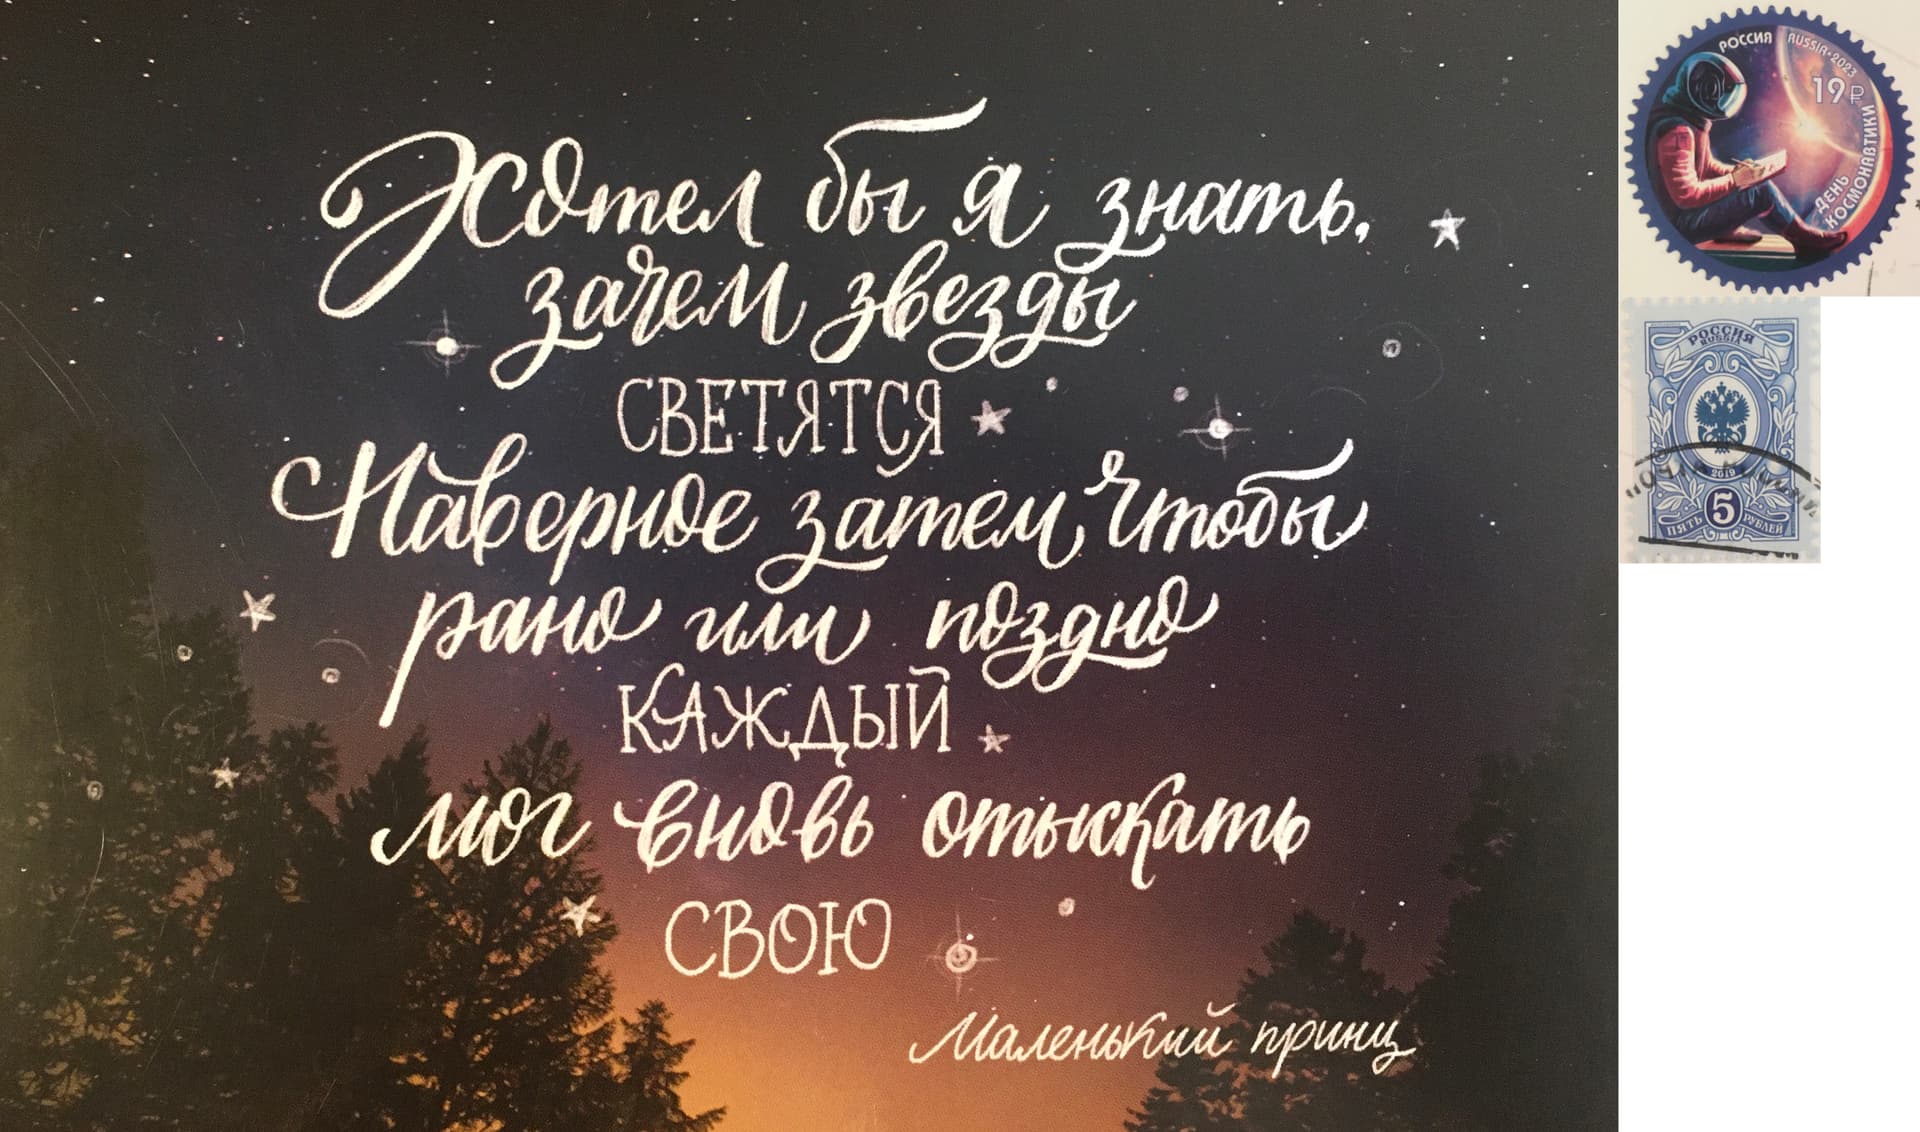 Хотел бы я знать,
зачем звезды
СВЕТЯТСЯ
Наверное затем, чтобы
рано или поздно
КАЖДЫЙ
мог вновь отыскать
СВОЮ
Маленький принц
РОССИЯ RUSSIA•2023
19₽
ДЕНЬ
КОСМОНАВТИКИ
РОССИЯ
RUSSIA
2019
5
ПЯТЬ РУБЛЕЙ